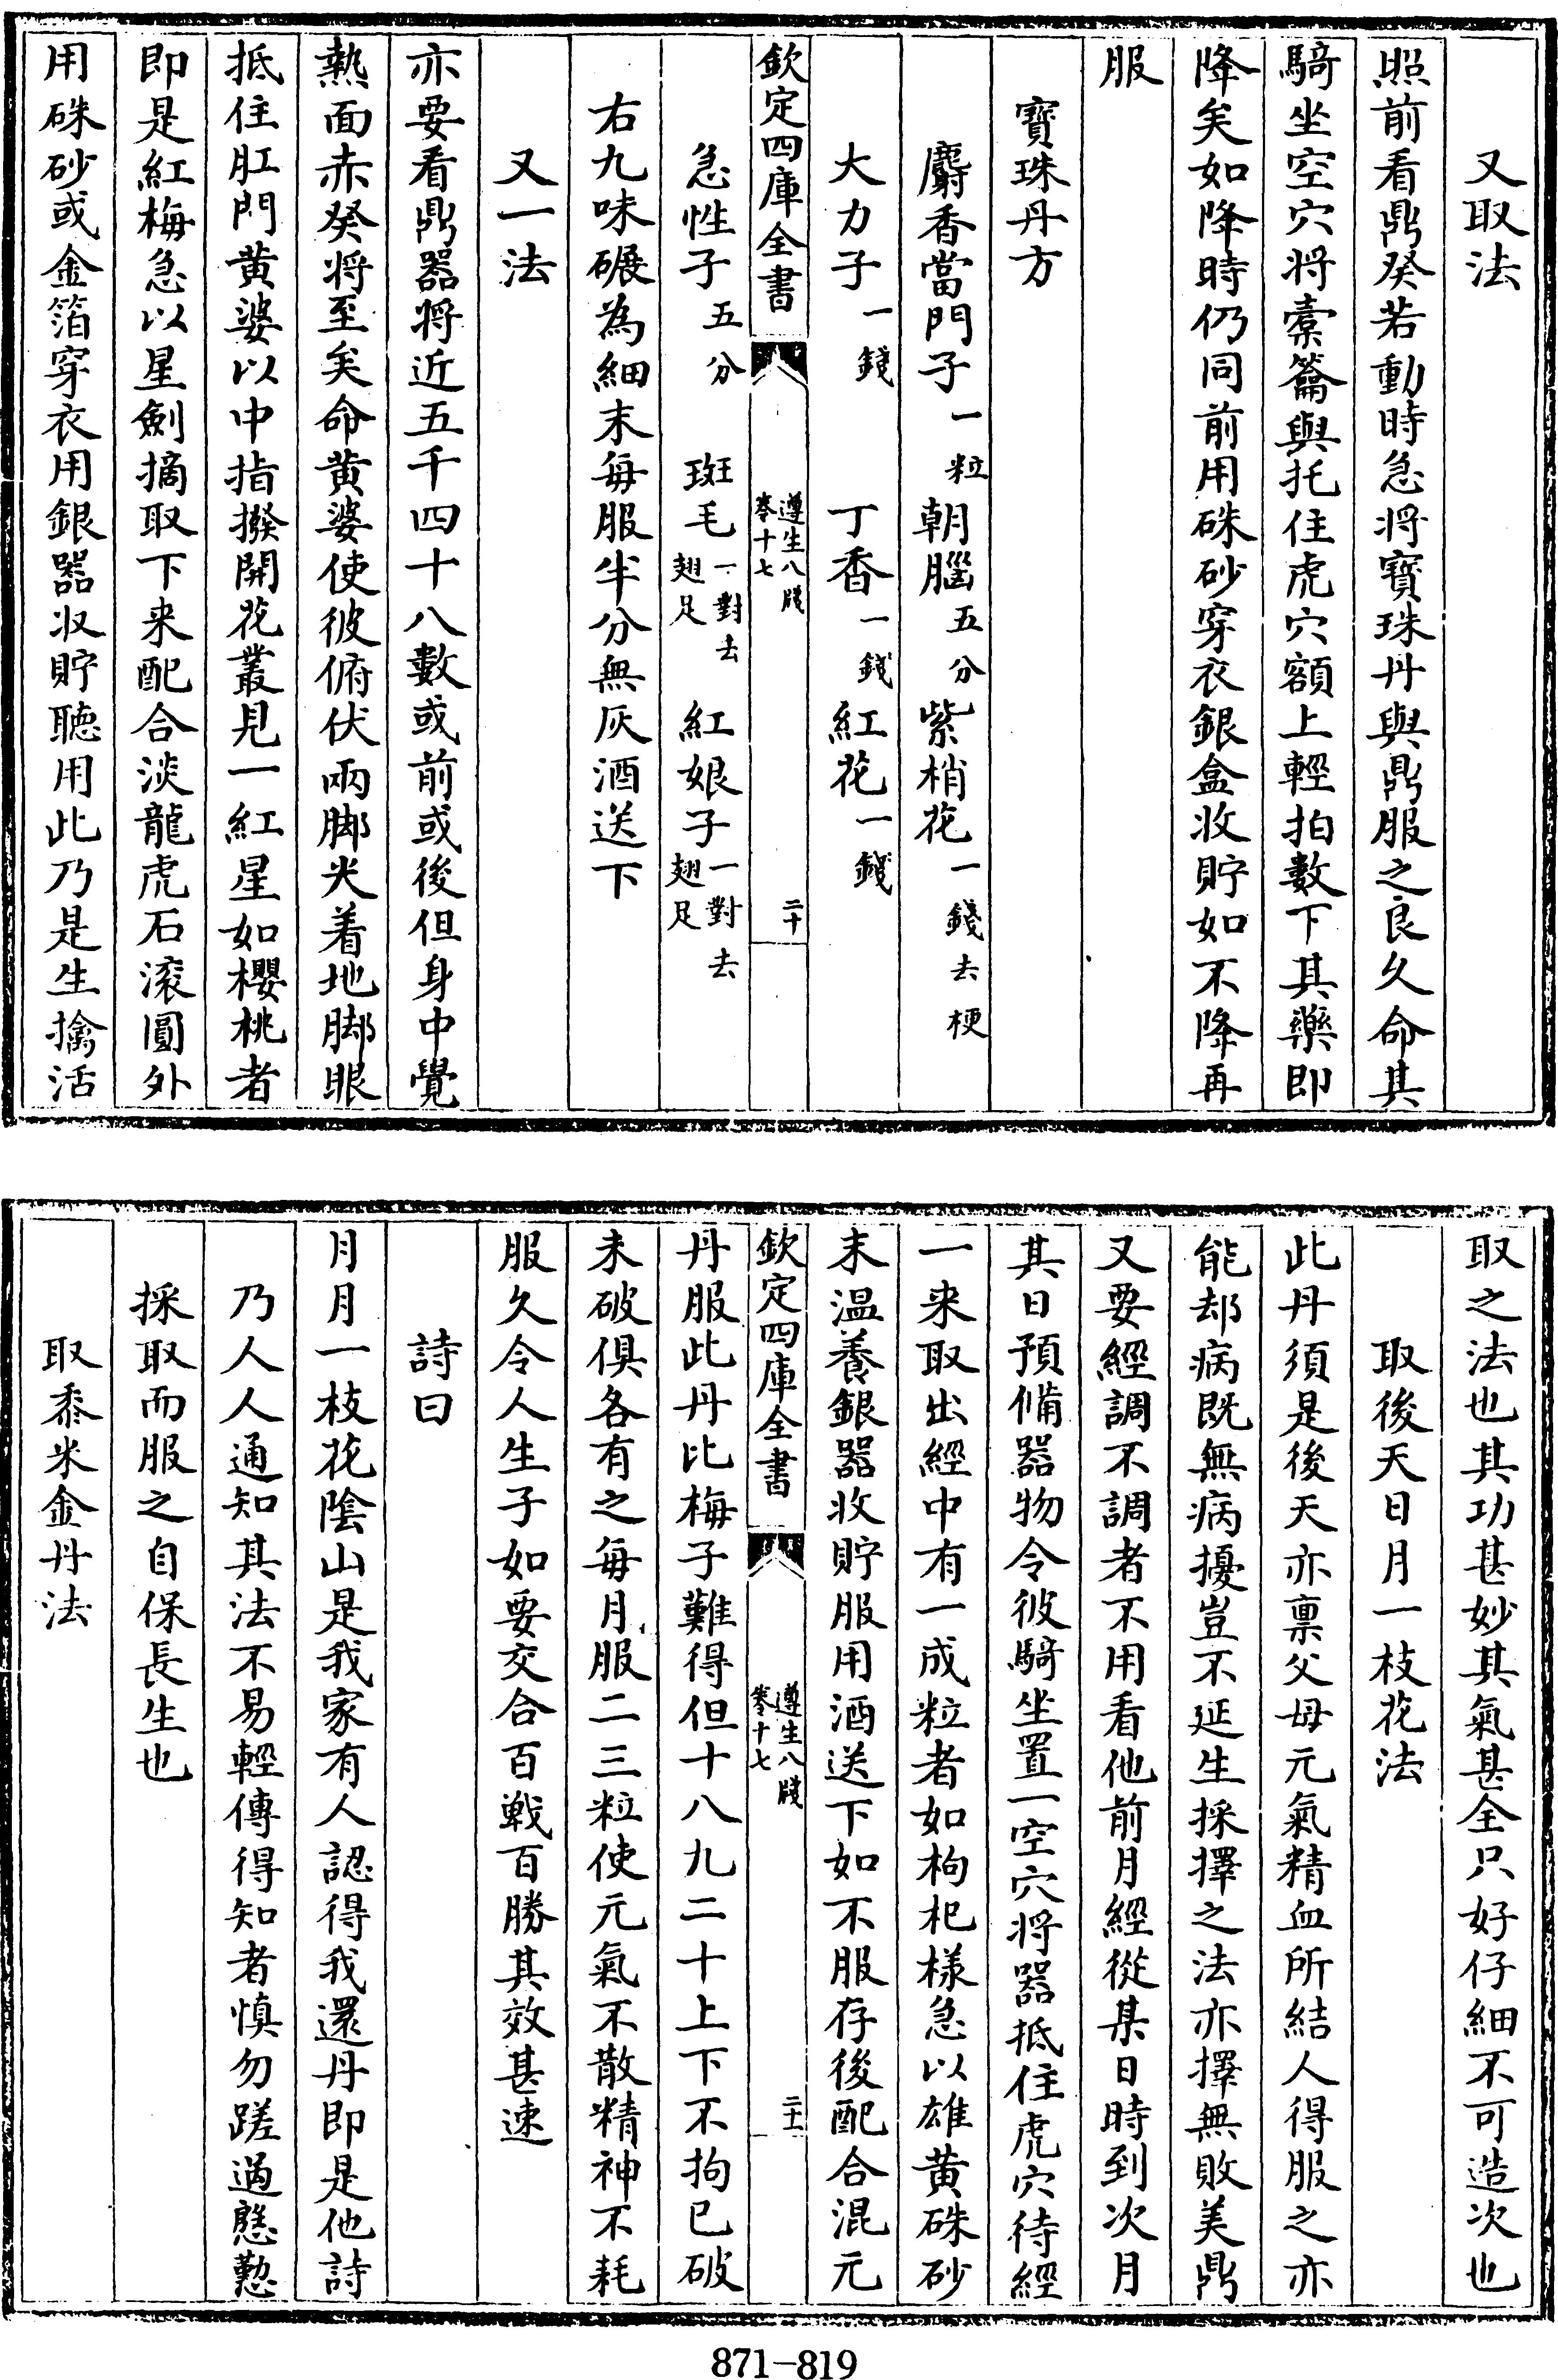 又取法
照前看鼎癸若動時急将寳珠丹與鼎服之良久命其
騎坐空穴将橐籥與托住虎穴額上輕拍數下其藥即
降矣如降時仍同前用硃砂穿衣銀盒收貯如不降再
服
寳珠丹方
麝香當門子一粒 朝腦五分 紫梢花一錢去梗
大力子一錢 丁香一錢 紅花一錢
欽定四庫全書 遵生八牋 卷十七 二十
急性子五分 斑毛一對去翅足 紅娘子一對去翅足
右九味碾為細末每服半分無灰酒送下
又一法
亦要看鼎器将近五千四十八數或前或後但身中覺
熱面赤癸将至矣命黄婆使彼俯伏兩脚尖着地脚眼
抵住肛門黄婆以中指撥開花叢見一紅星如櫻桃者
即是紅梅急以星劍摘取下来配合淡龍虎石滚圓外
用硃砂或金箔穿衣用銀器収貯聽用此乃是生擒活
取之法也其功甚妙其氣甚全只好仔細不可造次也
取後天日月一枝花法
此丹須是後天亦禀父母元氣精血所結人得服之亦
能却病既無病擾豈不延生採擇之法亦擇無敗美鼎
又要經調不調者不用看他前月經從某日時到次月
其日預備器物令彼騎坐置一空穴将器抵住虎穴待經
一来取出經中有一成粒者如枸杞様急以雄黄硃砂
末温養銀器收貯服用酒送下如不服存後配合混元
欽定四庫全書 遵生八牋 卷十七 二十一
丹服此丹比梅子難得但十八九二十上下不拘已破
未破俱各有之每月服二三粒使元氣不散精神不耗
服久令人生子如要交合百戰百勝其效甚速
詩曰
月月一枝花陰山是我家有人認得我還丹即是他詩
乃人人通知其法不易輕傳得知者慎勿蹉過慇懃
採取而服之自保長生也
取黍米金丹法
871-819